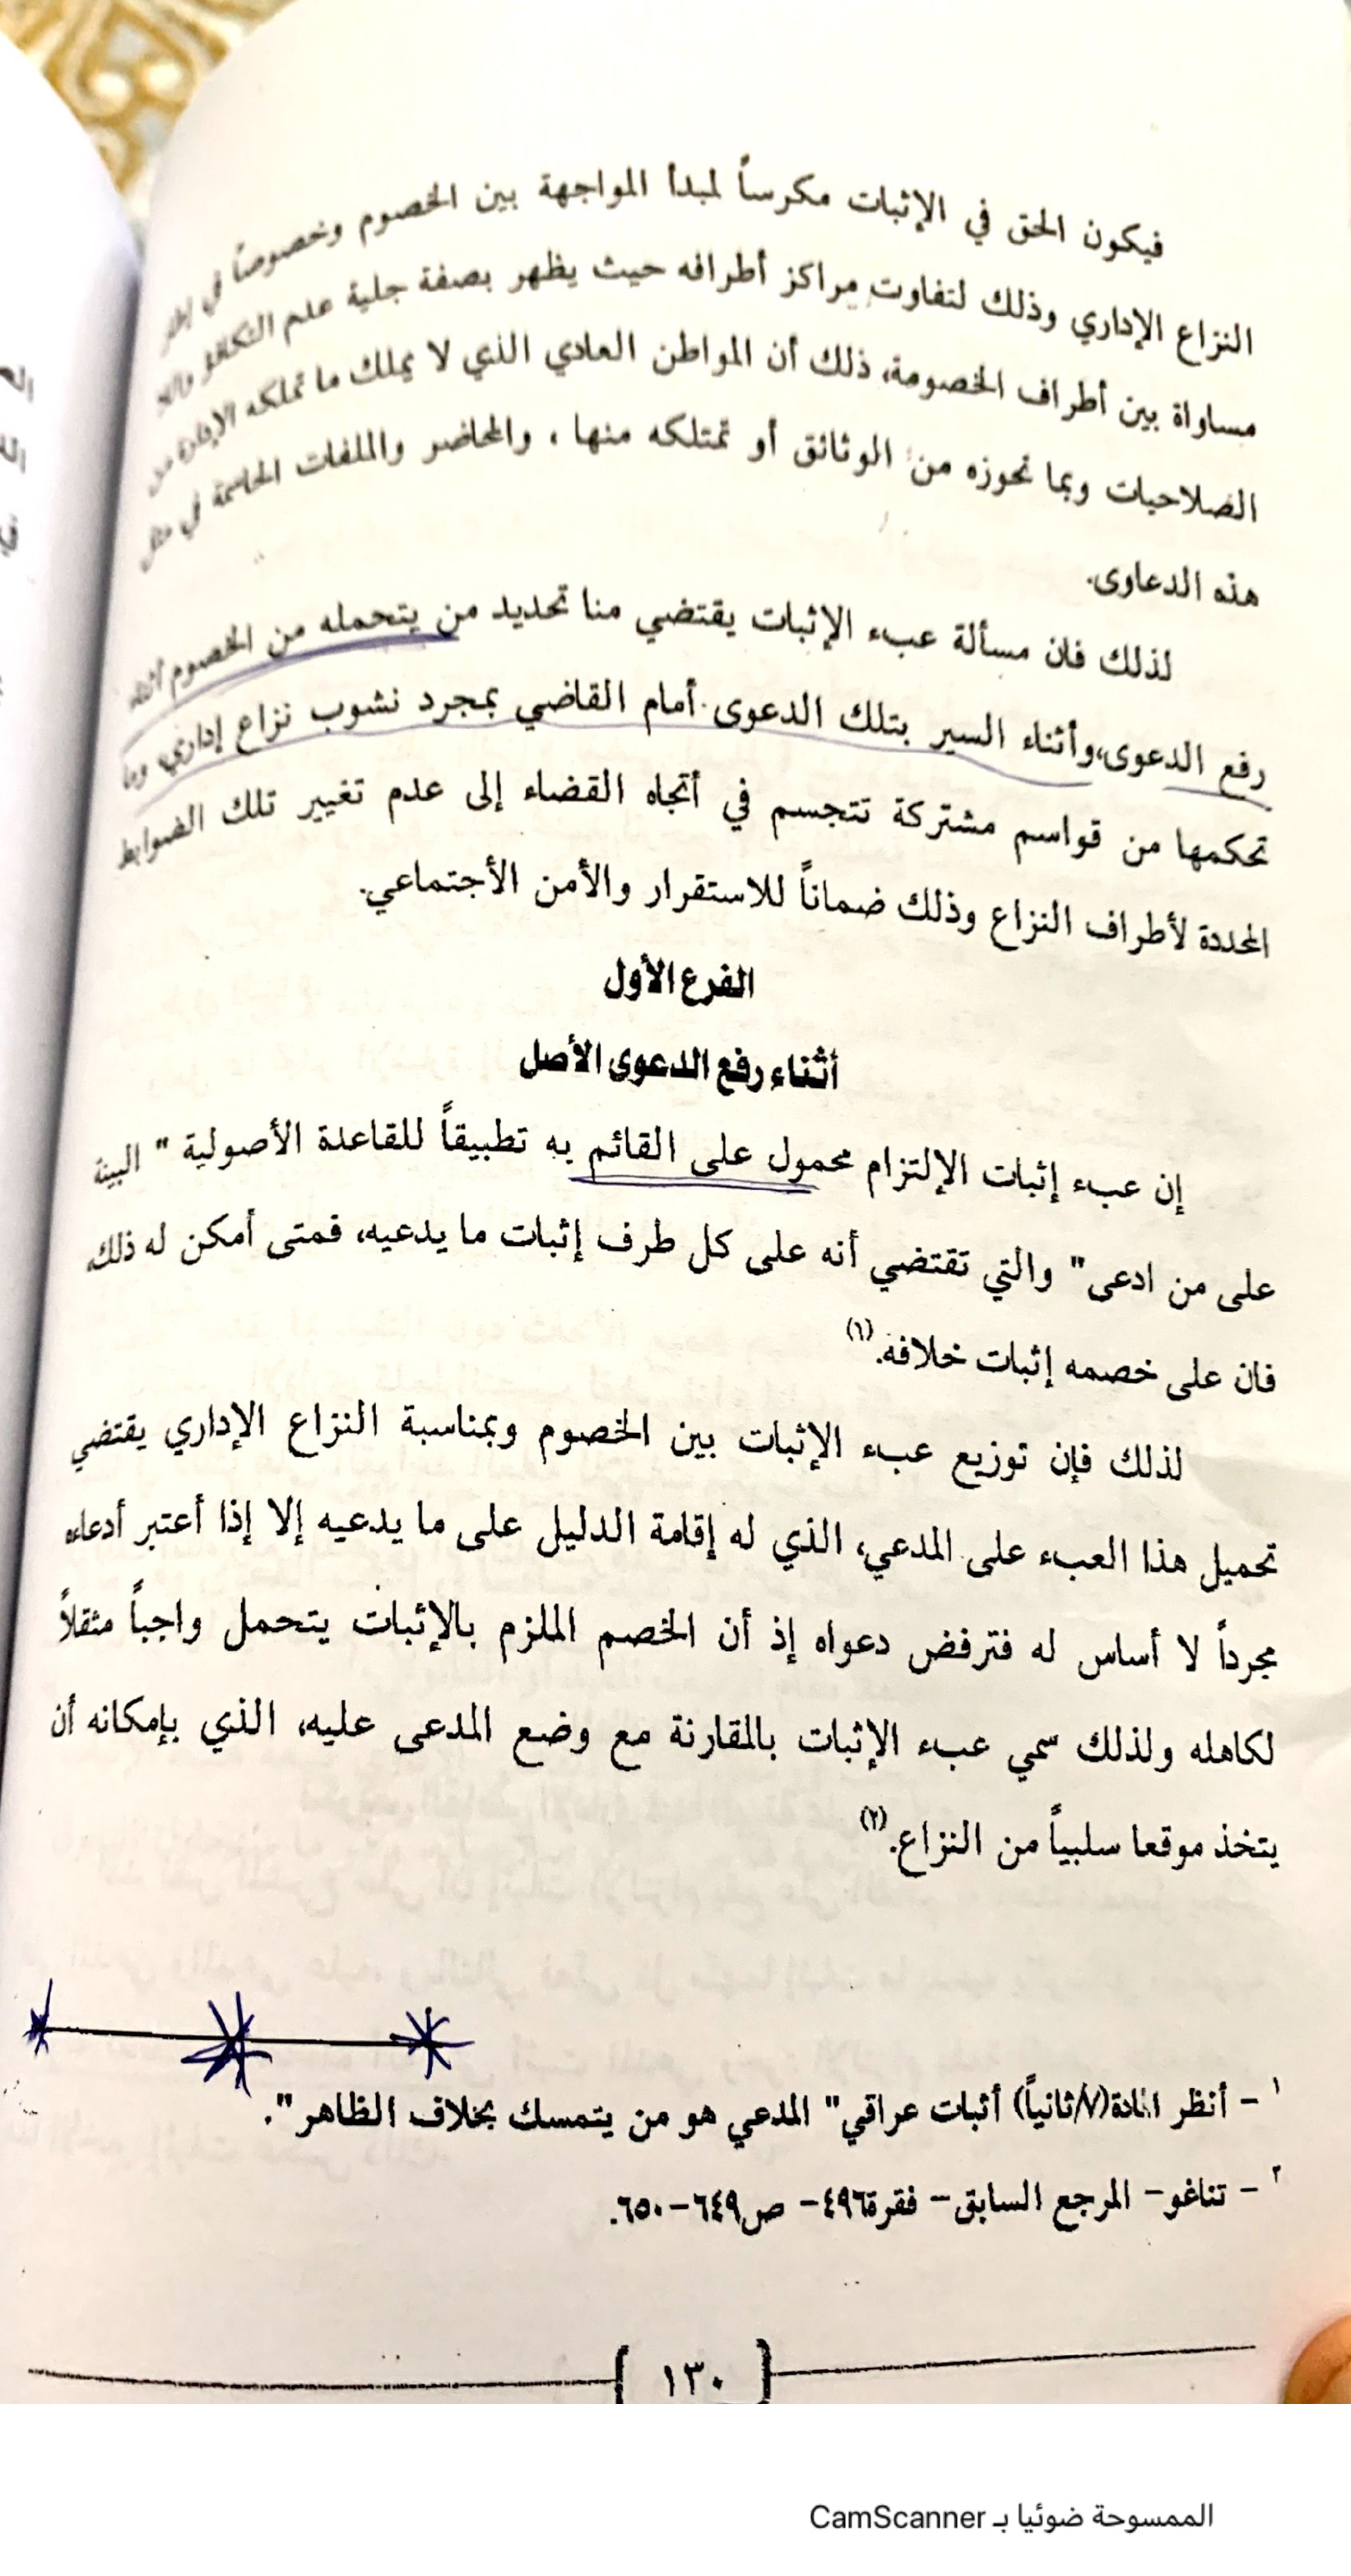 فيكون الحق في الإثبات مكرساً لمبدأ المواجهة بين الخصوم وخصوصاً في
النزاع الإداري وذلك لتفاوت مراكز أطرافه حيث يظهر بصفة جلية علم التكافؤ واللا
مساواة بين أطراف الخصومة، ذلك أن المواطن العادي الذي لا يملك ما تملكه الإدارة من
الصلاحيات وبما تحوزه من الوثائق أو تمتلكه منها ، والمحاضر والملفات الحاسمة في مثل
هذه الدعاوى.
لذلك فان مسألة عبء الإثبات يقتضي منا تحديد من يتحمله من الخصوم أثناء
رفع الدعوى،وأثناء السير بتلك الدعوى أمام القاضي بمجرد نشوب نزاع إداري، وما
تحكمها من قواسم مشتركة تتجسم في أتجاه القضاء إلى عدم تغيير تلك الضوابط
المحددة لأطراف النزاع وذلك ضماناً للاستقرار والأمن الأجتماعي.
الفرع الأول
أثناء رفع الدعوى الأصل
إن عبء إثبات الإلتزام محمول على القائم به تطبيقاً للقاعدة الأصولية " البينة
على من ادعى" والتي تقتضي أنه على كل طرف إثبات ما يدعيه، فمتى أمكن له ذلك،
فان على خصمه إثبات خلافه.(١)
لذلك فإن توزيع عبء الإثبات بين الخصوم وبمناسبة النزاع الإداري يقتضي
تحميل هذا العبء على المدعي، الذي له إقامة الدليل على ما يدعيه إلا إذا أعتبر أدعاءه
مجرداً لا أساس له فترفض دعواه إذ أن الخصم الملزم بالإثبات يتحمل واجباً مثقلاً
لكاهله ولذلك سمي عبء الإثبات بالمقارنة مع وضع المدعى عليه، الذي بإمكانه أن
يتخذ موقعا سلبياً من النزاع.(٢)
١ - أنظر المادة(٧/ثانياً) أثبات عراقي" المدعي هو من يتمسك بخلاف الظاهر".
٢ - تناغو- المرجع السابق- فقرة٤٩٦- ص٦٤٩-٦٥٠.
١٣٠
الممسوحة ضوئيا بـ CamScanner